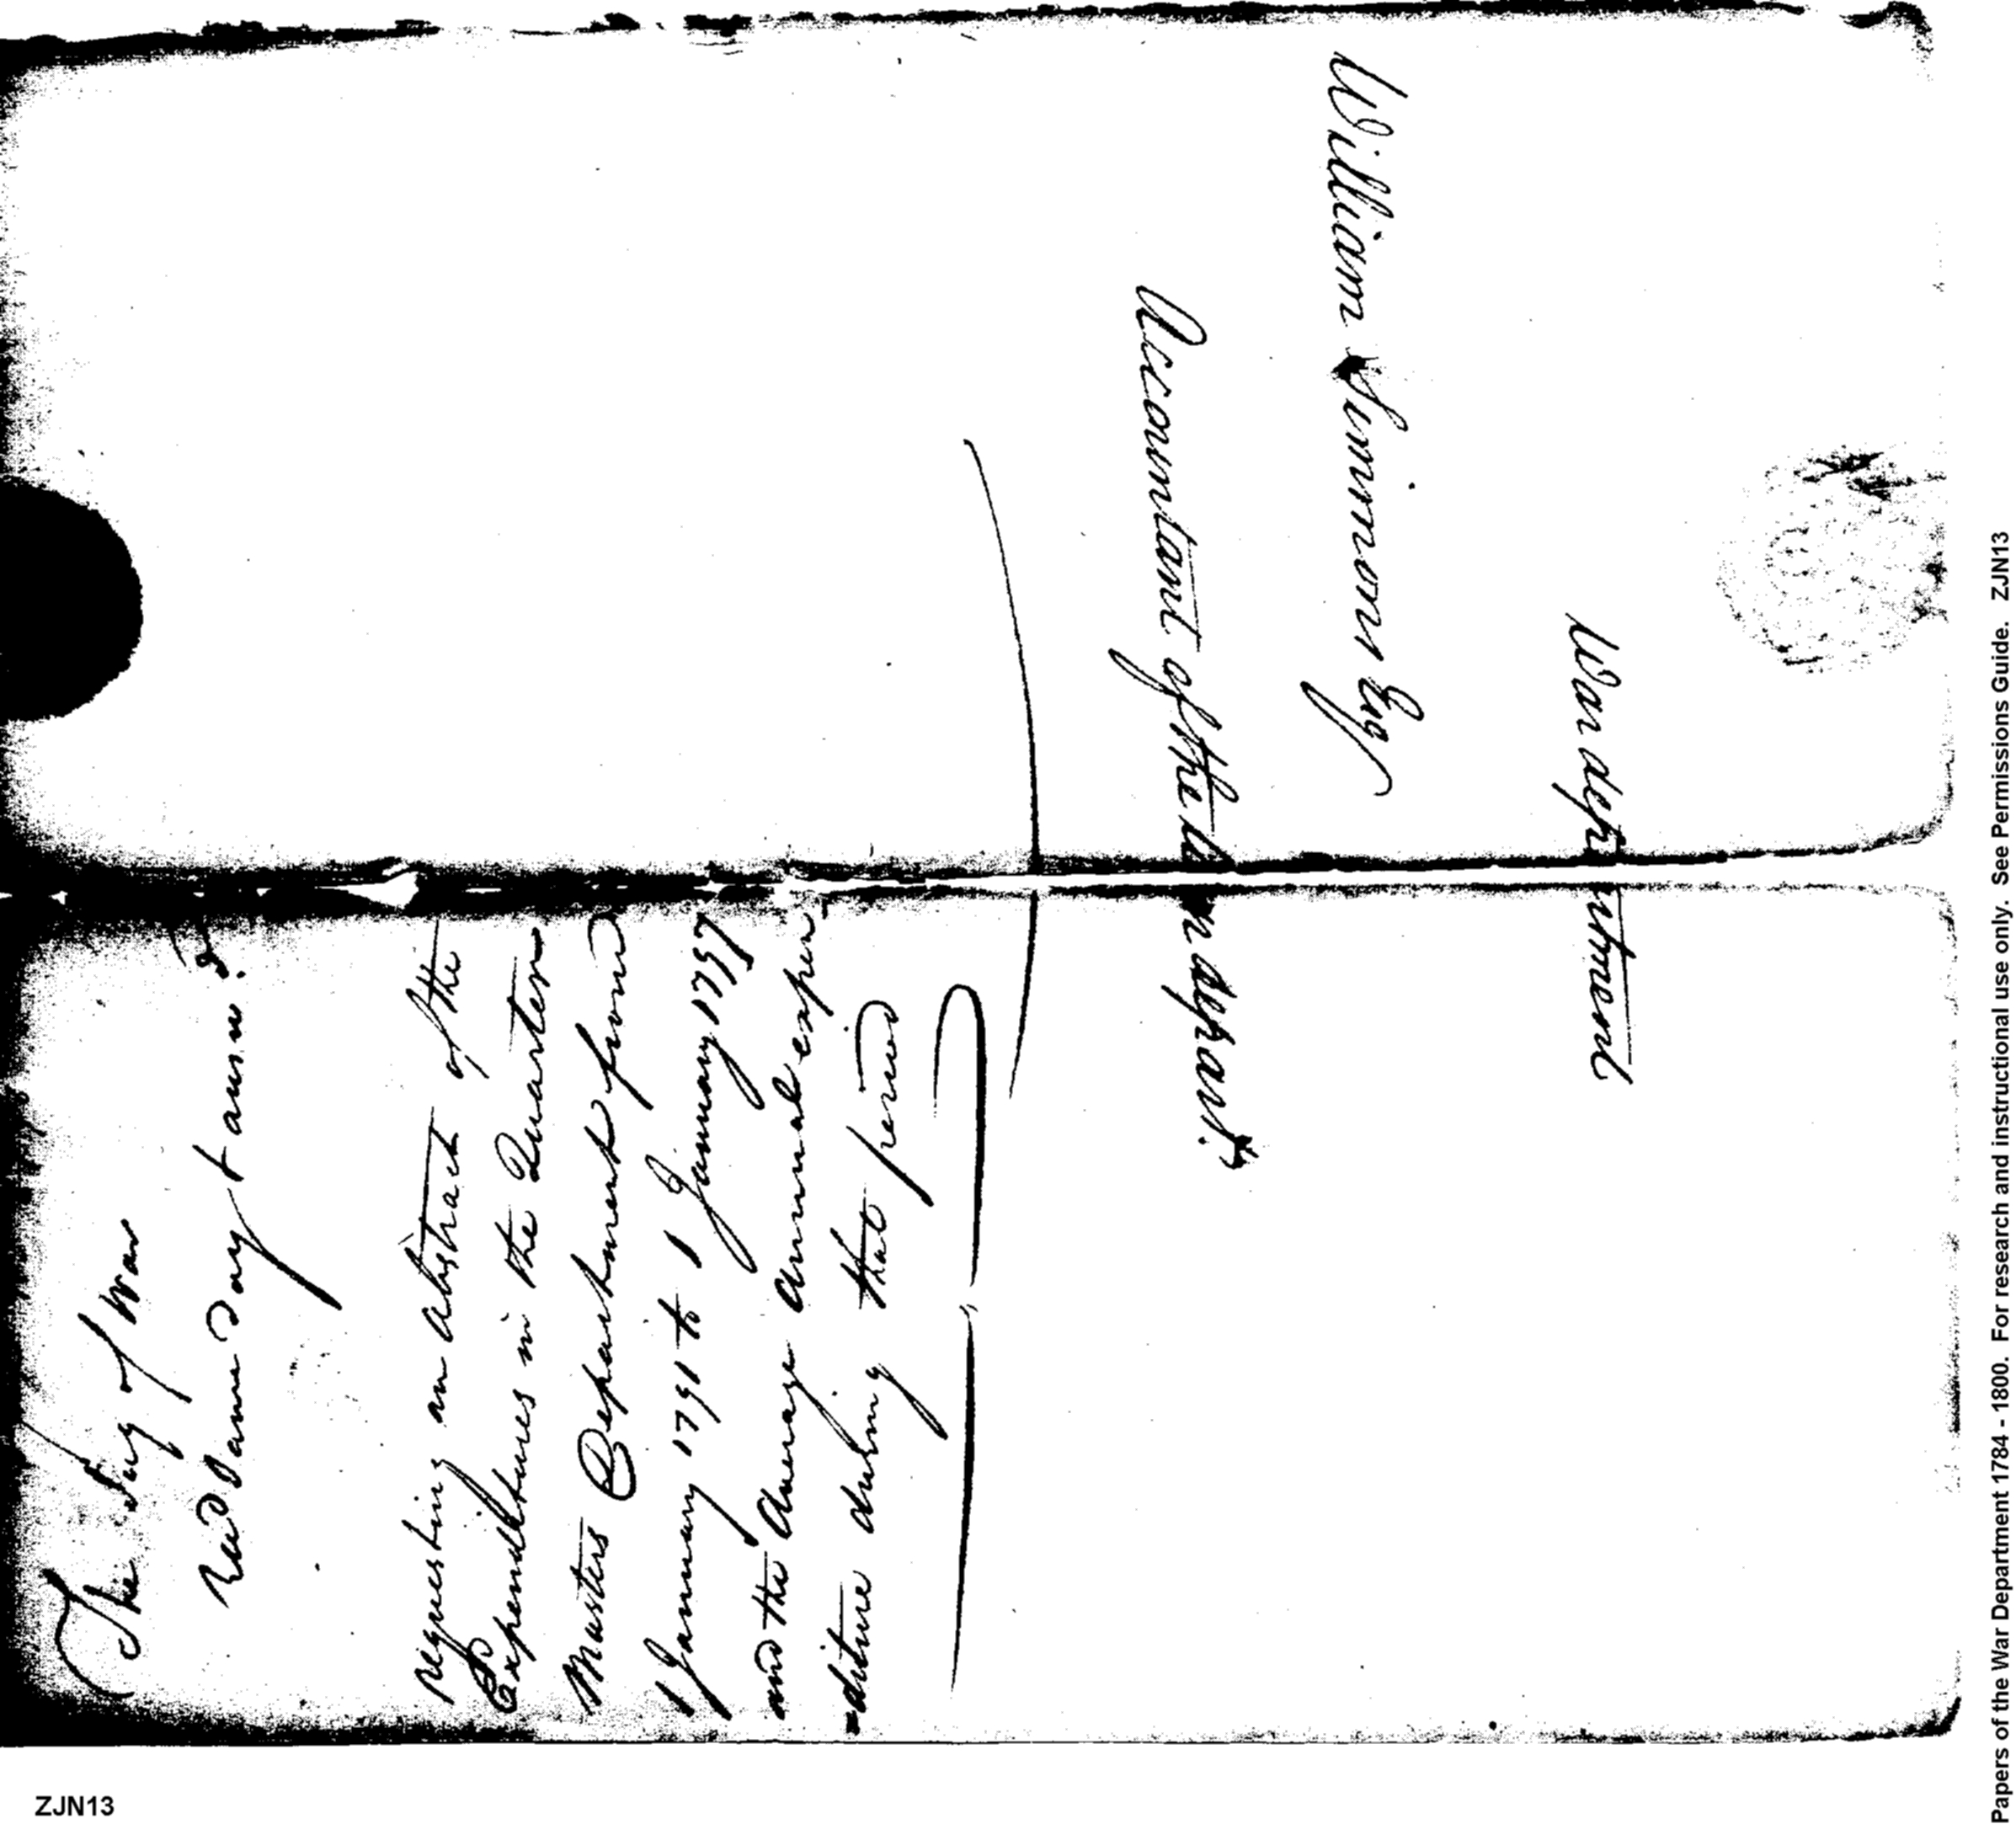 William Simmons Esq
Accountant of the War depart.
War department
The Secy of War
recd same day & answd.
requesting an abstract of the
Expenditures in the Quarter
Masters Department from
1 January 1791 to 1 January 1797
and the Average Annual expen
=diture during that period
ZJN13
Papers of the War Department 1784 - 1800. For research and instructional use only. See Permissions Guide. ZJN13